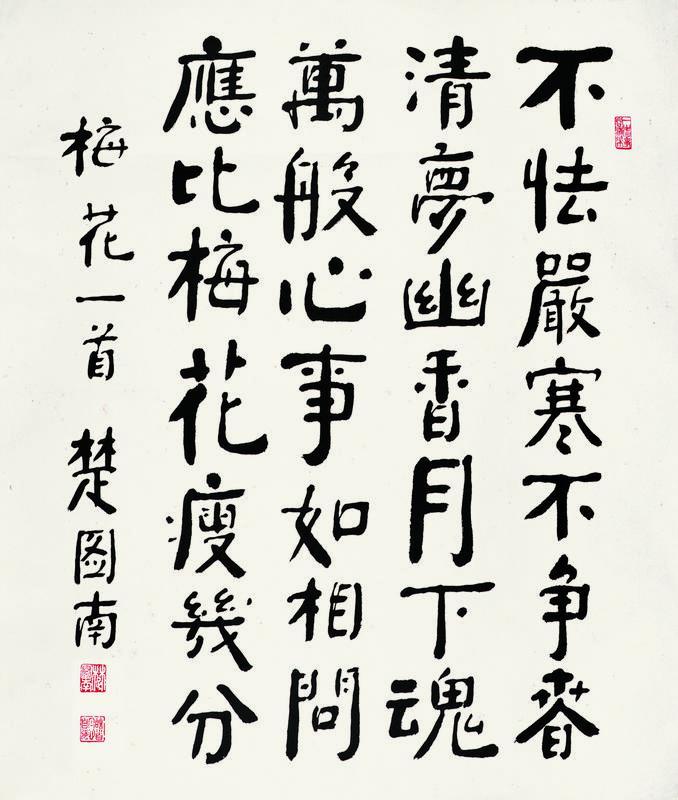 不怯嚴寒不争春
清夢幽香月下魂
萬般心事如相問
應比梅花瘦幾分
梅花一首 楚图南